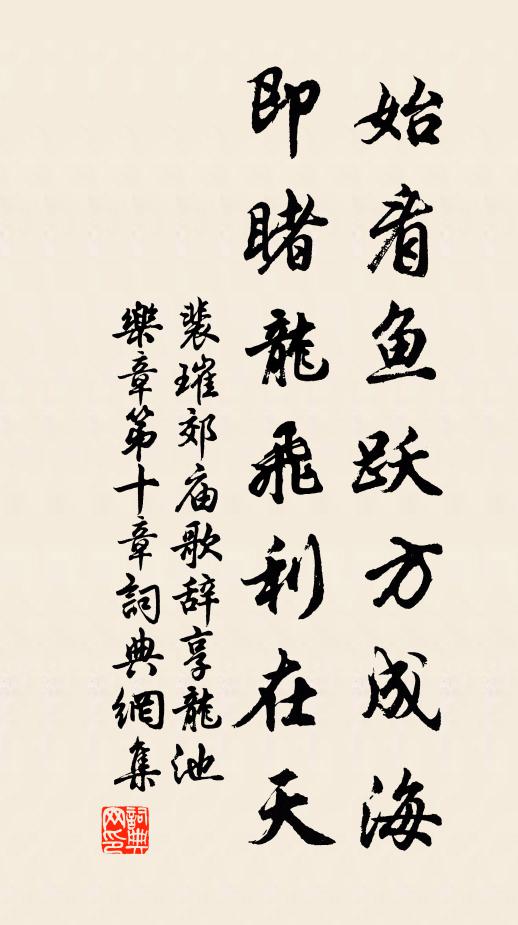 始看鱼跃方成海
即睹龍飛利在天
裴璀郊庙歌辞享龍池
樂章第十章詞典網集
詞典
网印